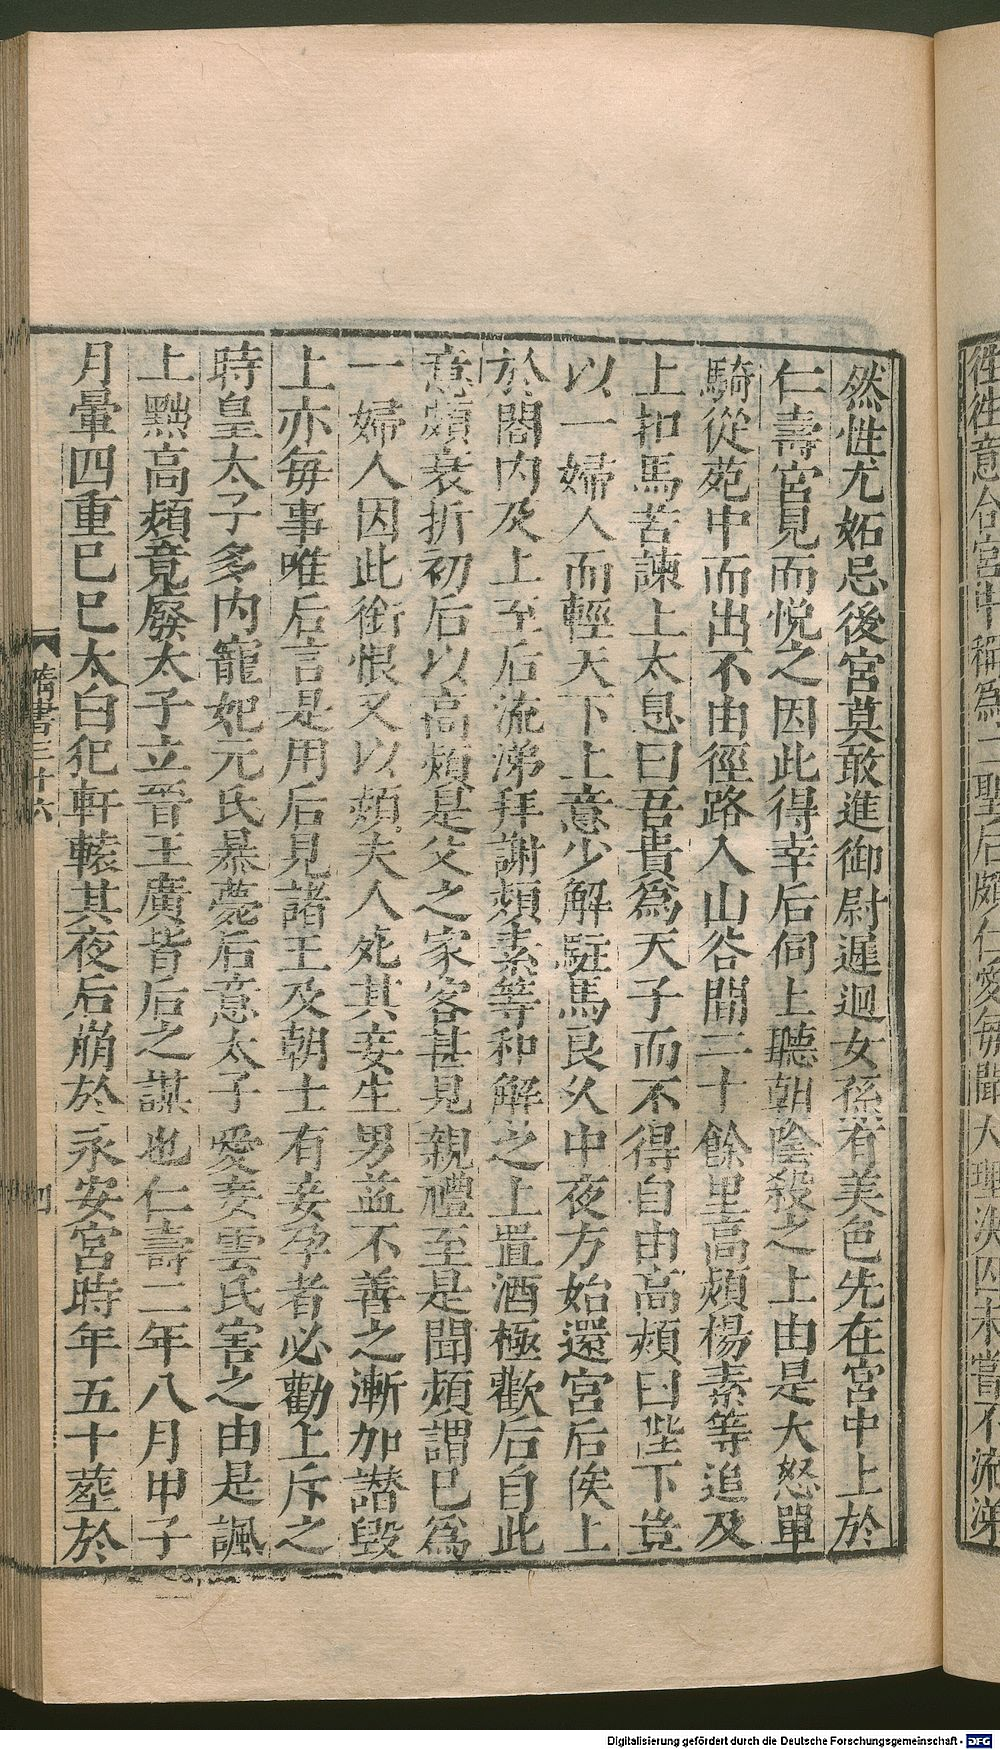 徃徃意合宮中稱爲二聖后頗仁愛每聞大理決囚未嘗不流涕
然性尤妬忌後宮莫敢進御尉遲迴女孫有美色先在宮中上於
仁壽宮見而悅之因此得幸后伺上聽朝陰殺之上由是大怒單
騎從苑中而出不由徑路入山谷間二十餘里高熲楊素等追及
上扣馬苦諫上太息曰吾貴爲天子而不得自由高熲曰陛下豈
以一婦人而輕天下上意少解駐馬良久中夜方始還宮后俟上
於閤內及上至后流涕拜謝熲素等和解之上置酒極歡后自此
意頗衰折初后以高熲是父之家客甚見親禮至是聞熲謂已爲
一婦人因此銜恨又以熲夫人死其妾生男益不善之漸加譖毀
上亦每事唯后言是用后見諸王及朝士有妾孕者必勸上斥之
時皇太子多內寵妃元氏暴薨后意太子愛妾雲氏害之由是諷
上黜高熲竟廢太子立晉王廣皆后之謀也仁壽二年八月甲子
月暈四重已巳太白犯軒轅其夜后崩於永安宮時年五十葬於
隋書三十六
四
Digitalisierung gefördert durch die Deutsche Forschungsgemeinschaft - DFG